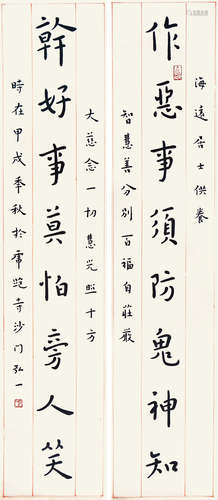 海遠居士供養
作惡事須防鬼神知
智慧善分別百福自莊嚴
大慈念一切慧光照十方
幹好事莫怕旁人笑
時在甲戌季秋於虎跑寺沙门弘一